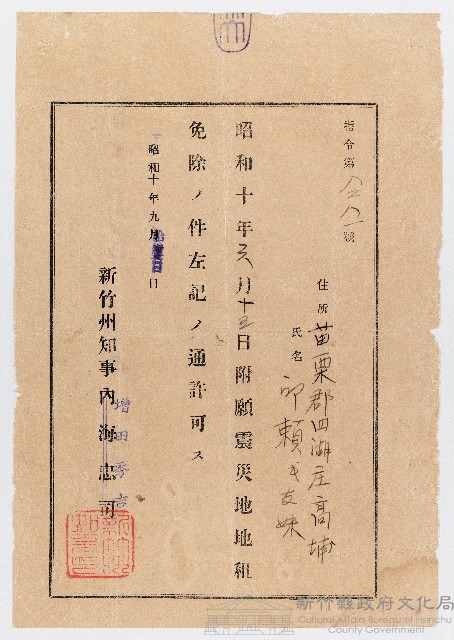 指令第八三八一號
住所 苗栗郡四湖庄高埔
氏名 邱賴氏友妹
昭和十年六月十五日附願震災地地租
免除ノ件左記ノ通許可ス
昭和十年九月 日
新竹州知事內海忠司
增田秀吉
新竹縣政府文化局
Cultural Affairs Bureau of Hsinchu
County Government